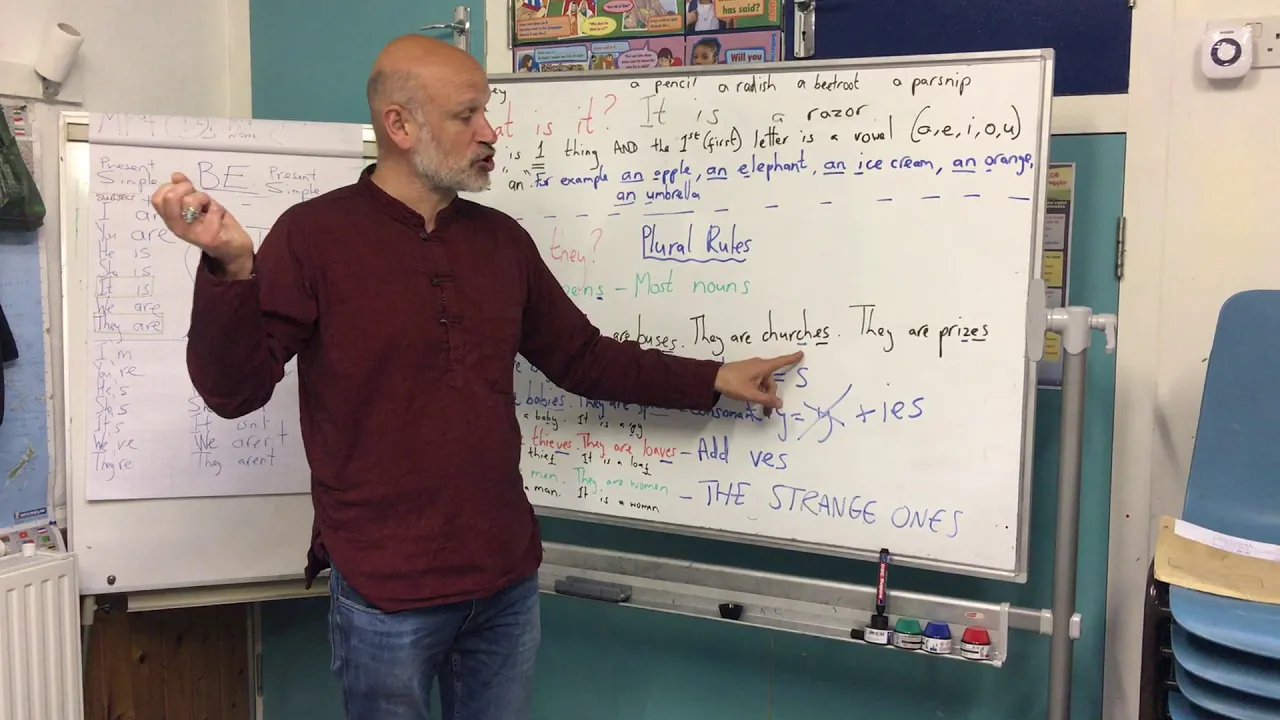 has said?
Will you
BE
Present
Simple
Present
Simple
SUBJECT
I
You are
He is
She is
It is
We are
They are
I'm
You're
He's
She's
It's
We've
They're
It isn't
We aren't
They aren't
a pencil a radish a beetroot a parsnip
at is it? It is a razor
is 1 thing AND the 1st (first) letter is a vowel (a,e,i,o,u)
"an". For example an apple, an elephant, an ice cream, an orange,
an umbrella
they? Plural Rules
pens - Most nouns
are buses. They are churches. They are prizes
= s
babies. They are consonant y = y + ies
a baby. It is a
thieves. They are loaves - Add ves
thief. It is a loaf
men. They are women - THE STRANGE ONES
a man. It is a woman